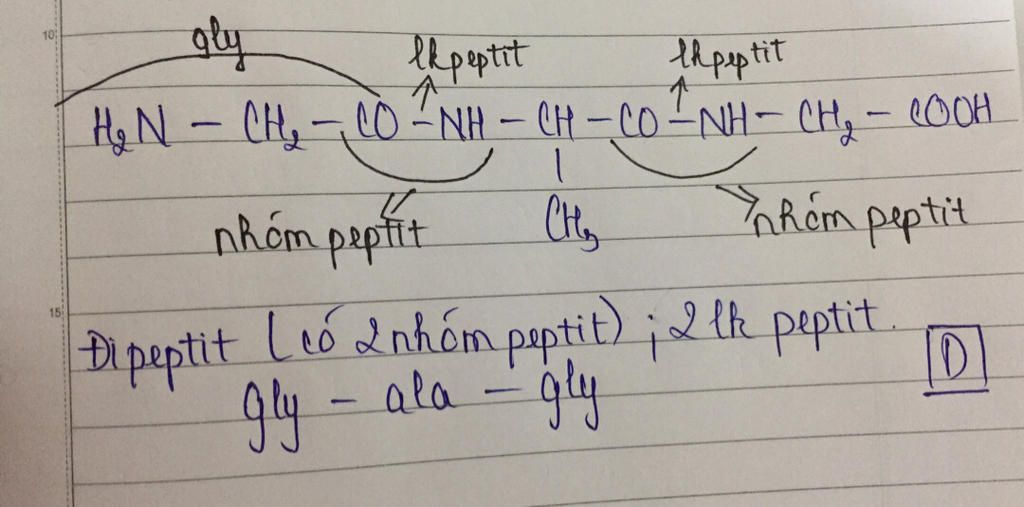 10
gly
lk peptit lk peptit
H₂N – CH₂ – CO – NH – CH – CO – NH – CH₂ – COOH
nhóm peptit CH₃ nhóm peptit
15
Đipeptit (có 2 nhóm peptit) ; 2 lk peptit.
D
gly – ala – gly